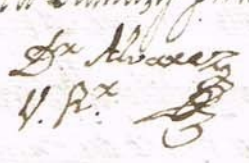 Dr. Alvarez
V. R.x